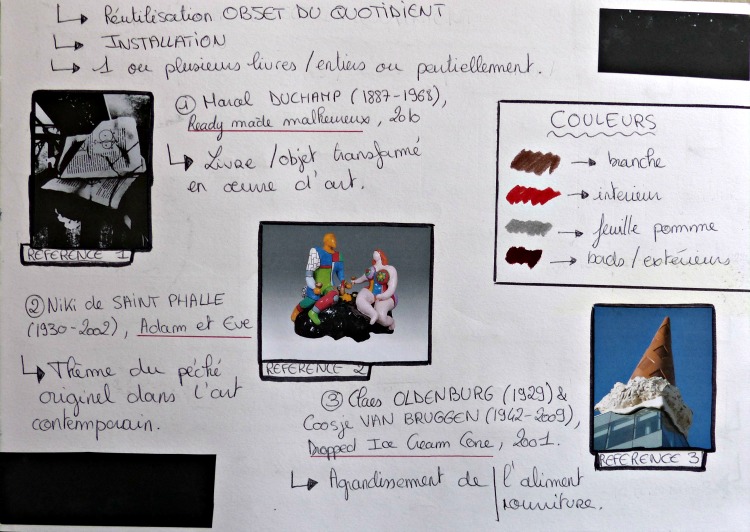 ↳ Réutilisation OBJET DU QUOTIDIENT
↳ INSTALLATION
↳ 1 ou plusieurs livres / entiers ou partiellement.
① Marcel DUCHAMP (1887-1968),
Ready made malheureux, 2010
↳ Livre / objet transformé
en œuvre d'art.
REFERENCE 1
COULEURS
→ branche
→ interieur
→ feuille pomme
→ bords / extérieurs
② Niki de SAINT PHALLE
(1930-2002), Adam et Eve
↳ Thème du péché
originel dans l'art
contemporain.
REFERENCE 2
③ Claes OLDENBURG (1929) &
Coosje VAN BRUGGEN (1942-2009),
Dropped Ice Cream Cone, 2001.
↳ Agrandissement de l'aliment
nourriture.
REFERENCE 3